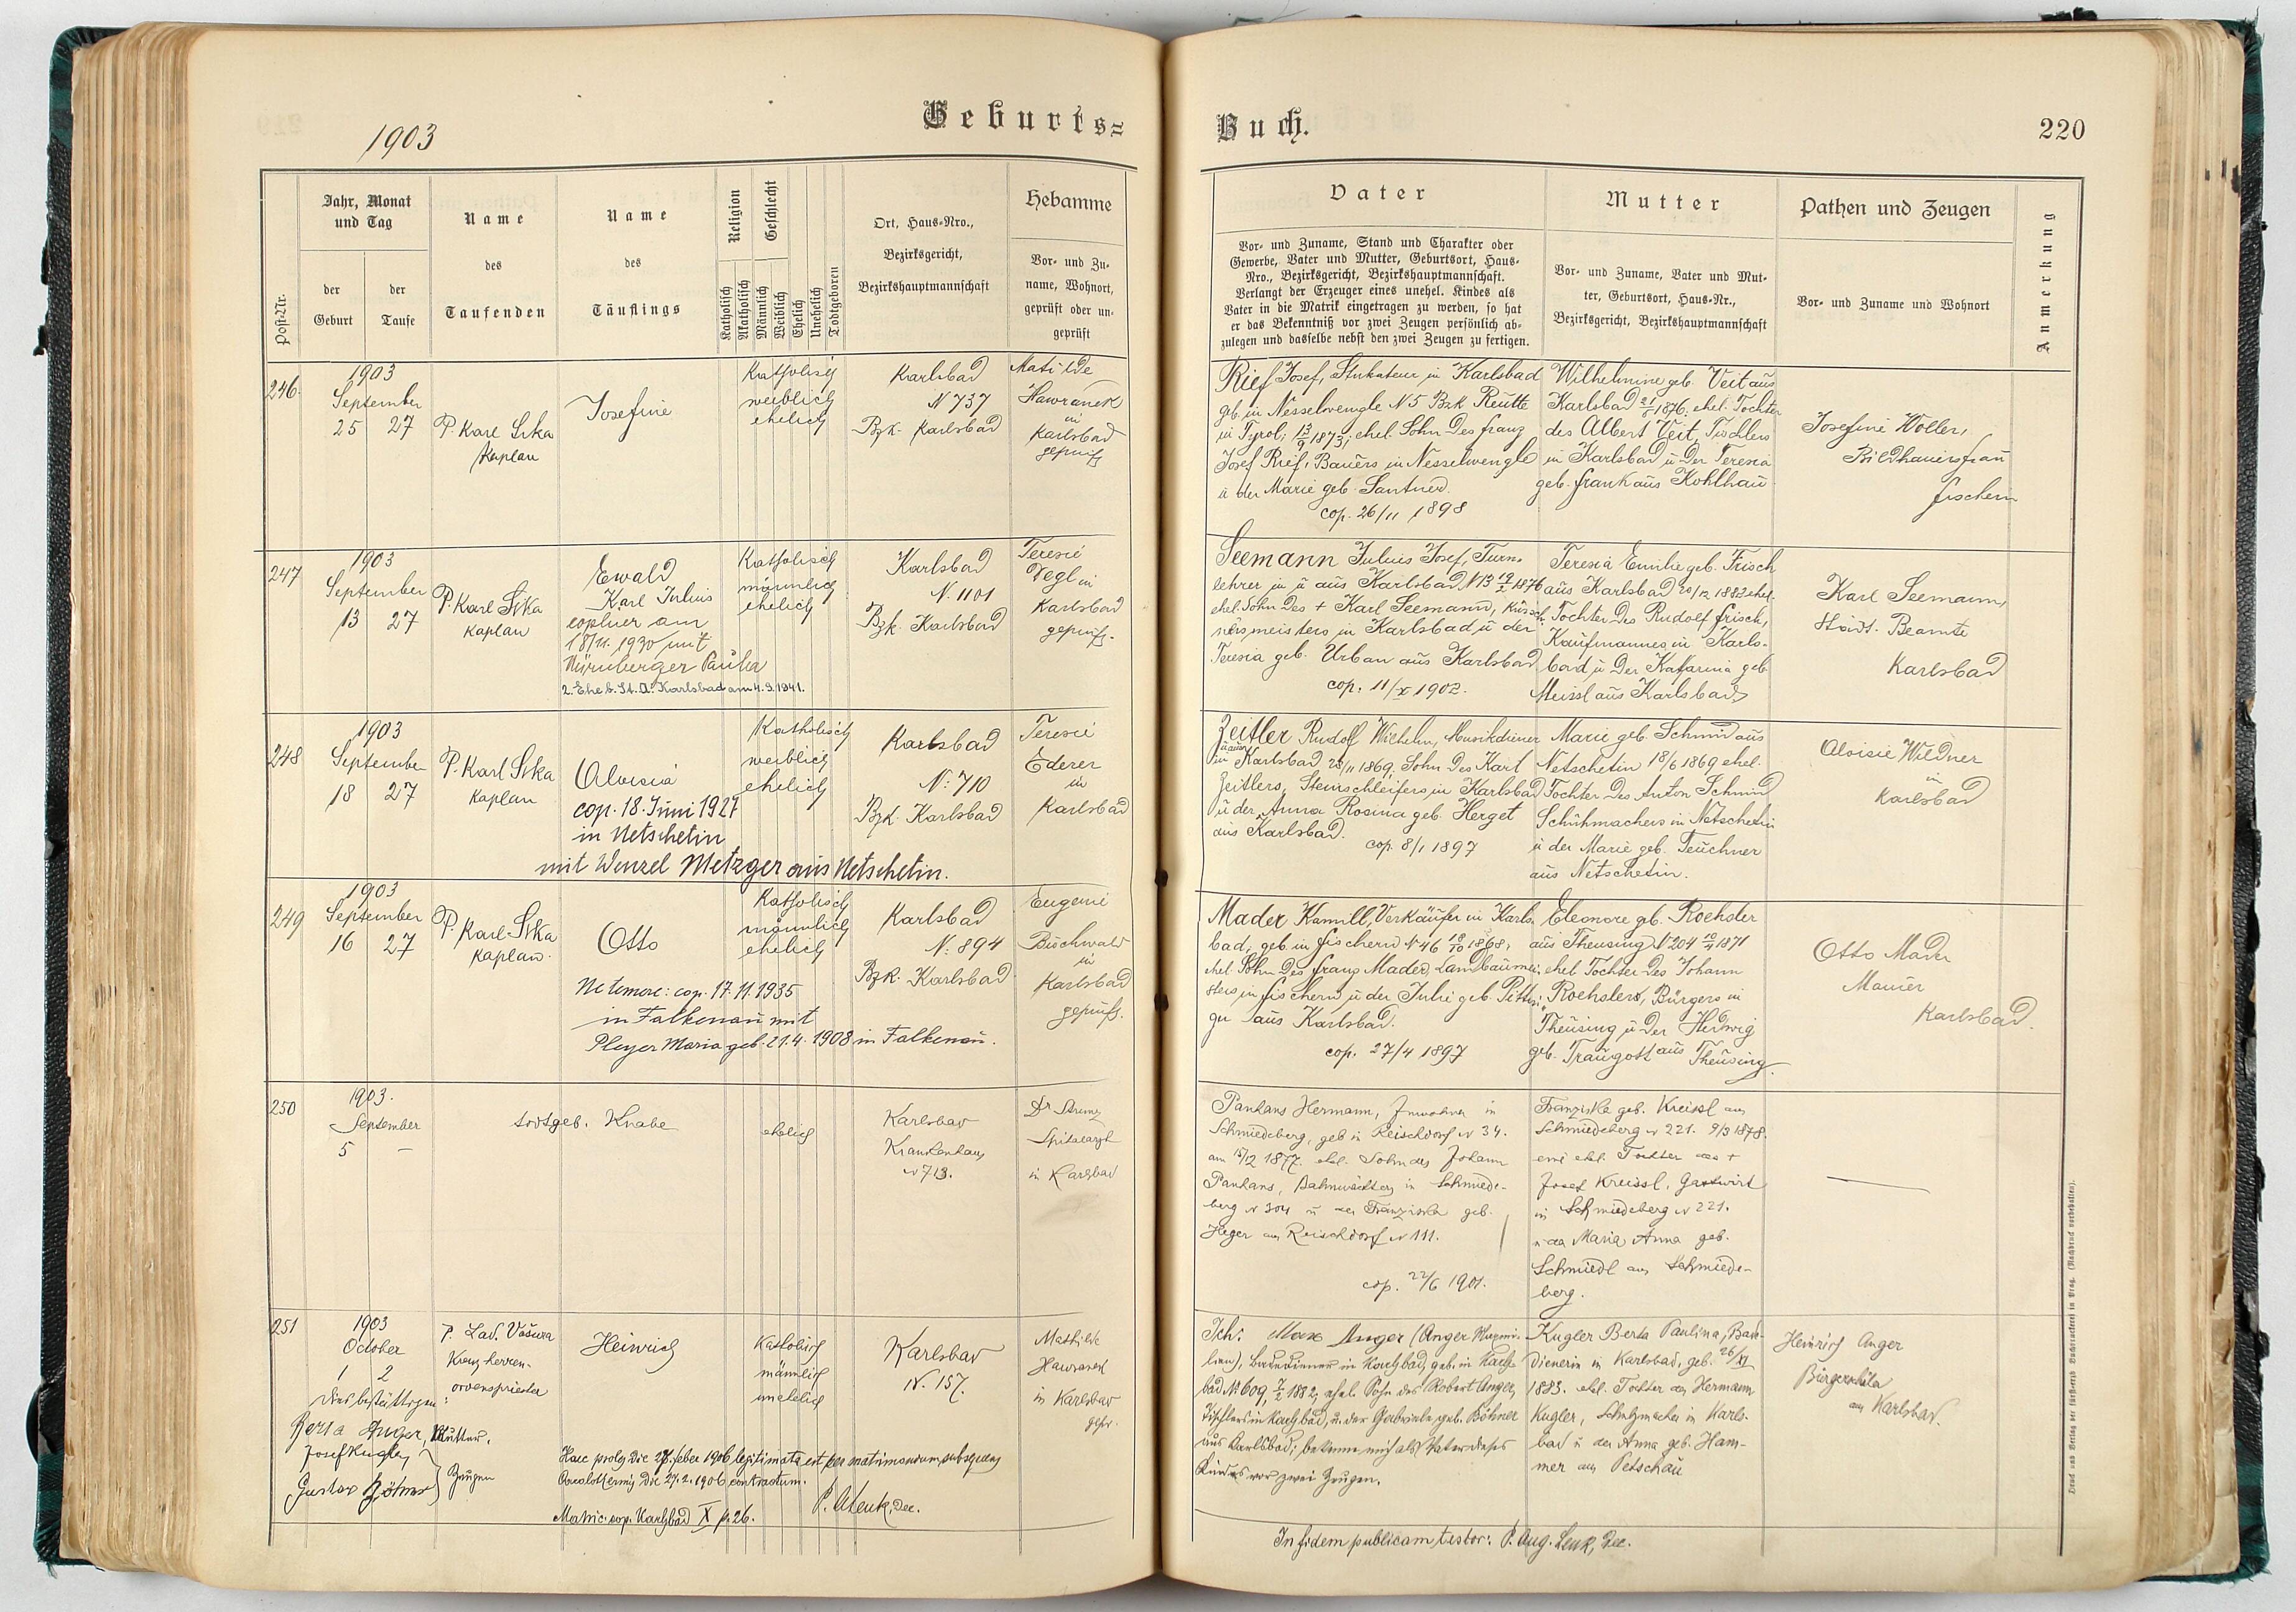 1903
Geburts=
Jahr, Monat
und Tag
Name
Name
Religion
Geschlecht
Hebamme
Ort, Haus-Nro.,
Bezirksgericht,
Bezirkshauptmannschaft
des
des
Vor- und Zu-
name, Wohnort,
geprüft oder un-
geprüft
Post-Nr.
der
Geburt
der
Taufe
Taufenden
Täuflings
Katholisch
Akatholisch
Männlich
Weiblich
Ehelich
Unehelich
Todtgeboren
246.
1903
September
25 27
P. Karl Srka
Kaplan
Josefine
Katholisch
weiblich
ehelich
Karlsbad
N 737
Bzk. Karlsbad
Matilde
Hawranek
in
Karlsbad
geprüft
247
1903
September
13 27
P. Karl Srka
Kaplan
Ewald
Karl Julius
am
18/11. 1930 mit
Nürnberger Paula
2. Ehe b. St. A. Karlsbad am 4.9.1941.
Katholisch
männlich
ehelich
Karlsbad
N. 1101
Bzk. Karlsbad
Teresie
Vegl in
Karlsbad
geprüft.
248
1903
September
18 27
P. Karl Srka
Kaplan
Aloisia
cop. 18. Juni 1927
in Netschetin
mit Wenzel Metzger aus Netschetin.
Katholisch
weiblich
ehelich
Karlsbad
N: 710
Bzk. Karlsbad
Teresie
Ederer
in
Karlsbad
249
1903
September
16 27
P. Karl Srka
Kaplan.
Otto
Ne temere: cop. 17. 11. 1935
in Falkenau mit
Pleyer Maria geb. 21.4. 1908 in Falkenau.
Katholisch
männlich
ehelich
Karlsbad
N: 894
Bzk. Karlsbad
Eugenie
Buchwald
in
Karlsbad
geprüft.
250
1903.
September
5 —
todtgeb. Knabe
ehelich
Karlsbad
Krankenhaus
N 713.
Dr
Spitalarzt
in Karlsbad
251
1903
October
1 2
P. Lad. Vašura
Kreuzherren-
ordenspriester
Dies bestättigen:
Berta Anger, Mutter.
Josef Kugler
Gustav Böhner } Zeugen
Heinrich
Katholisch
männlich
unehelich
Karlsbad
N. 157.
Mathilde
Hawranek
in Karlsbad
gepr.
Haec proles die 27. feber 1906 legitimata est per matrimonium subsequens
die 27. 2. 1906 contractum.
Matric. cop. Karlsbad X p. 26.
P. A. Lenk, Dec.
Buch.
220
Vater
Mutter
Pathen und Zeugen
Anmerkung
Vor- und Zuname, Stand und Charakter oder
Gewerbe, Vater und Mutter, Geburtsort, Haus-
Nro., Bezirksgericht, Bezirkshauptmannschaft.
Verlangt der Erzeuger eines unehel. Kindes als
Vater in die Matrik eingetragen zu werden, so hat
er das Bekenntniß vor zwei Zeugen persönlich ab-
zulegen und dasselbe nebst den zwei Zeugen zu fertigen.
Vor- und Zuname, Vater und Mut-
ter, Geburtsort, Haus-Nr.,
Bezirksgericht, Bezirkshauptmannschaft
Vor- und Zuname und Wohnort
Rief Josef, Stukateur in Karlsbad
geb. in Nesselwengle N 5 Bzk Reutte
in Tyrol, 13/9 1873; ehel. Sohn des Franz
Josef Rief, Bauers in Nesselwengle
u der Marie geb. Santner.
cop. 26/11 1898
Wilhelmine geb. Veit aus
Karlsbad 21/5 1876. ehel. Tochter
des Albert Veit, Tischlers
in Karlsbad u der Teresia
geb. Frank aus Kohlhau
Josefine Woller,
Bildhauersfrau
Fischern
Seemann Julius Josef, Turn-
lehrer in u aus Karlsbad N 13 12/2 1876
ehel. Sohn des + Karl Seemann, Kürsch-
nersmeisters in Karlsbad u der
Teresia geb. Urban aus Karlsbad
cop. 11/X 1902.
Teresia Emilie geb. Frisch
aus Karlsbad 20/12 1882 ehel.
Tochter des Rudolf Frisch,
Kaufmannes in Karls-
bad u der Katharina geb
Meissl aus Karlsbad
Karl Seemann,
Städt. Beamte
Karlsbad
Zeitler Rudolf Wilhelm, Musikdiener
in u aus Karlsbad 28/11 1869, Sohn des Karl
Zeitlers, Steinschleifers in Karlsbad
u der Anna Rosina geb. Herget
aus Karlsbad.
cop. 8/1 1897
Marie geb. Schmid aus
Netschetin 18/6 1869 ehel.
Tochter des Anton Schmid
Schuhmachers in Netschetin
u der Marie geb. Teuchner
aus Netschetin.
Aloisie Wildner
in
Karlsbad
Mader Kamill, Verkäufer in Karls-
bad, geb. in Fischern N 46 18/10 1868,
ehel. Sohn des Franz Mader, Landbaumei-
sters in Fischern u der Julie geb. Pittro-
ger aus Karlsbad.
cop. 27/4 1897
Eleonore geb. Roehsler
aus Theusing N 204 10/4 1871
ehel Tochter des Johann
Roehslers, Bürgers in
Theusing u der Hedwig
geb. Traugott aus Theusing.
Otto Mader
Maurer
Karlsbad.
Panhans Hermann, Inwohner in
Schmiedeberg, geb in Reischdorf N 34.
am 15/12 1877. ehel. Sohn des Johann
Panhans, Bahnwächters in Schmiede-
berg N 304 u der Franziska geb.
Heger aus Reischdorf N 111.
cop. 22/6 1901.
Franziska geb. Kreissl aus
Schmiedeberg N 221. 9/3 1878.
eine ehel. Tochter des +
Josef Kreissl, Gastwirt
in Schmiedeberg N 221.
u der Maria Anna geb.
Schmiedl aus Schmiede-
berg.
Ich: Max Anger (Anger Maxmi-
lian), Badediener in Karlsbad, geb. in Karls-
bad N 609, 7/2 1882, ehel. Sohn des Robert Anger,
Tischlers in Karlsbad, u. der Gabriele geb. Böhner
aus Karlsbad; bekenne mich als Vater dieses
Kindes vor zwei Zeugen.
Kugler Berta Paulina, Bade-
dienerin in Karlsbad, geb. 26/XI
1883. ehel. Tochter des Hermann
Kugler, Schuhmacher in Karls-
bad u der Anna geb. Ham-
mer aus Petschau
Heinrich Anger
Bürgerschüler
aus Karlsbad.
In fidem publicam testor: P. Aug. Lenk, Dec.
Druck und Verlag der fürsterzb. Buchdruckerei in Prag. (Nachdruck vorbehalten).